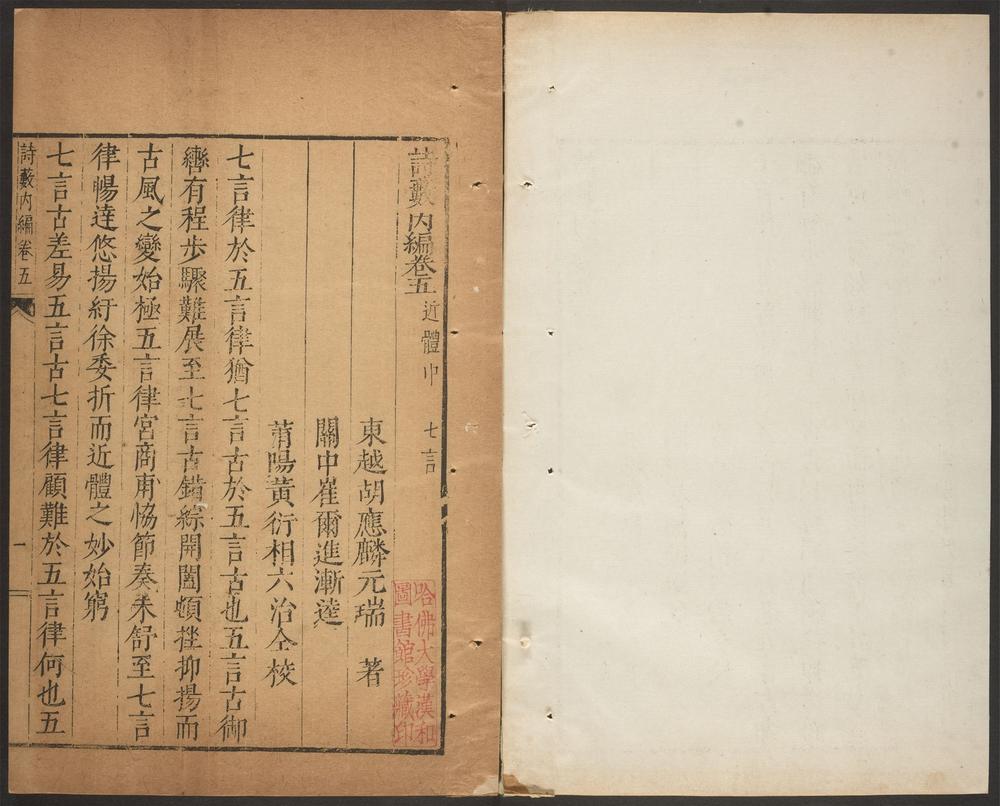 詩藪內編卷五 近體中 七言
東越胡應麟元瑞 著
關中崔爾進漸逵
莆陽黃衍相六治仝校
七言律於五言律猶七言古於五言古也五言古御
轡有程步驟難展至七言古錯綜開闔頓挫抑揚而
古風之變始極五言律宮商甫恊節奏未舒至七言
律暢達悠揚紆徐委折而近體之妙始窮
七言古差易五言古七言律顧難於五言律何也五
詩藪內編卷五
一
哈佛大學漢和
圖書館珍藏印